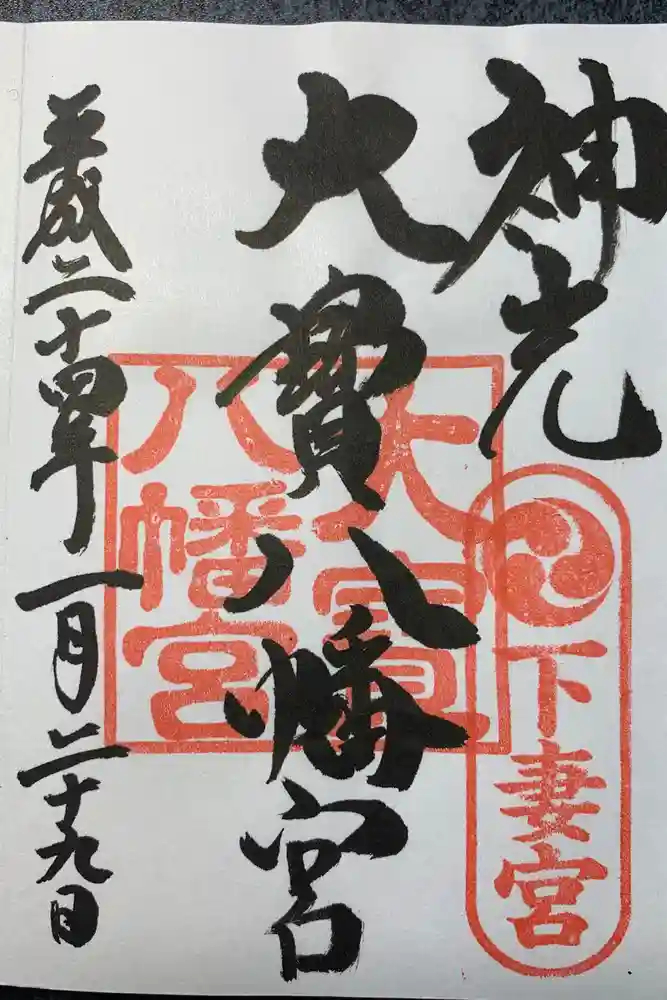 神光
大寶八幡宮
平成二十四年一月二十九日
大寳八幡宮
下妻宮